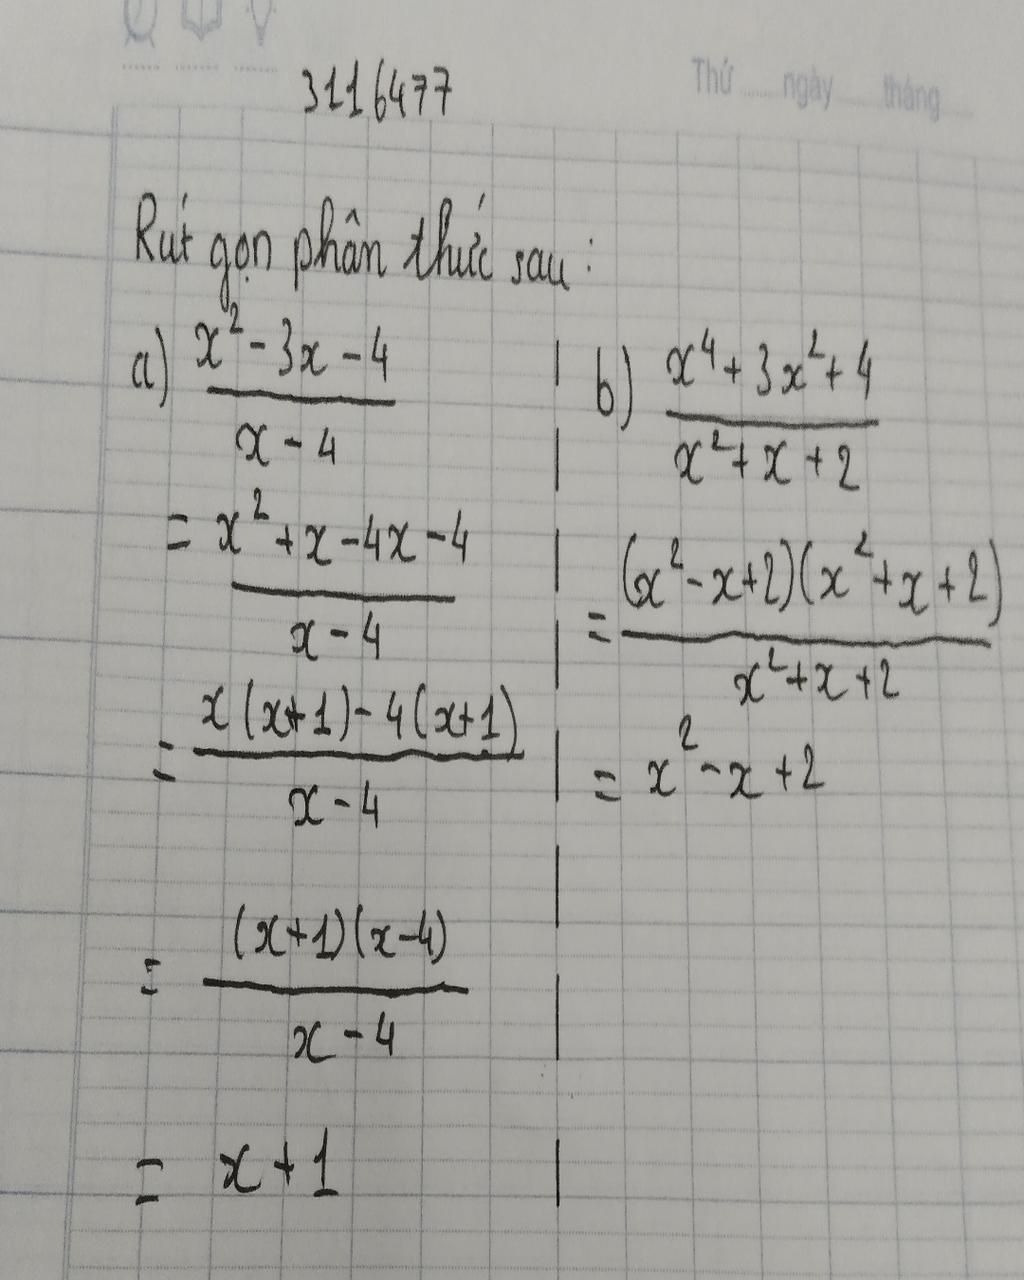 Thứ ngày tháng
3116477
Rút gọn phân thức sau:
a) x² - 3x - 4
x - 4
= x² + x - 4x - 4
x - 4
= x(x+1) - 4(x+1)
x - 4
= (x+1)(x-4)
x - 4
= x + 1
b) x⁴ + 3x² + 4
x² + x + 2
= (x² - x + 2)(x² + x + 2)
x² + x + 2
= x² - x + 2